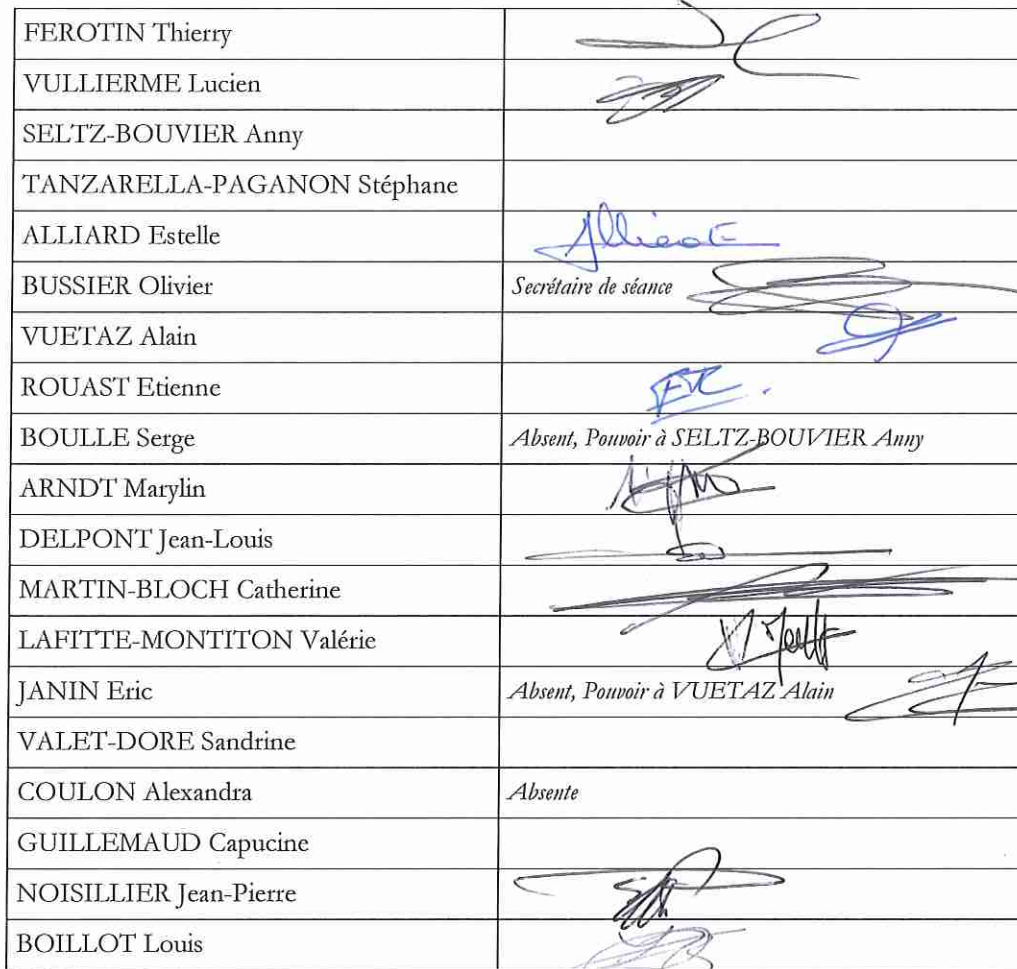 FEROTIN Thierry
VULLIERME Lucien
SELTZ-BOUVIER Anny
TANZARELLA-PAGANON Stéphane
ALLIARD Estelle
BUSSIER Olivier Secrétaire de séance
VUETAZ Alain
ROUAST Etienne
BOULLE Serge Absent, Pouvoir à SELTZ-BOUVIER Anny
ARNDT Marylin
DELPONT Jean-Louis
MARTIN-BLOCH Catherine
LAFITTE-MONTITON Valérie
JANIN Eric Absent, Pouvoir à VUETAZ Alain
VALET-DORE Sandrine
COULON Alexandra Absente
GUILLEMAUD Capucine
NOISILLIER Jean-Pierre
BOILLOT Louis